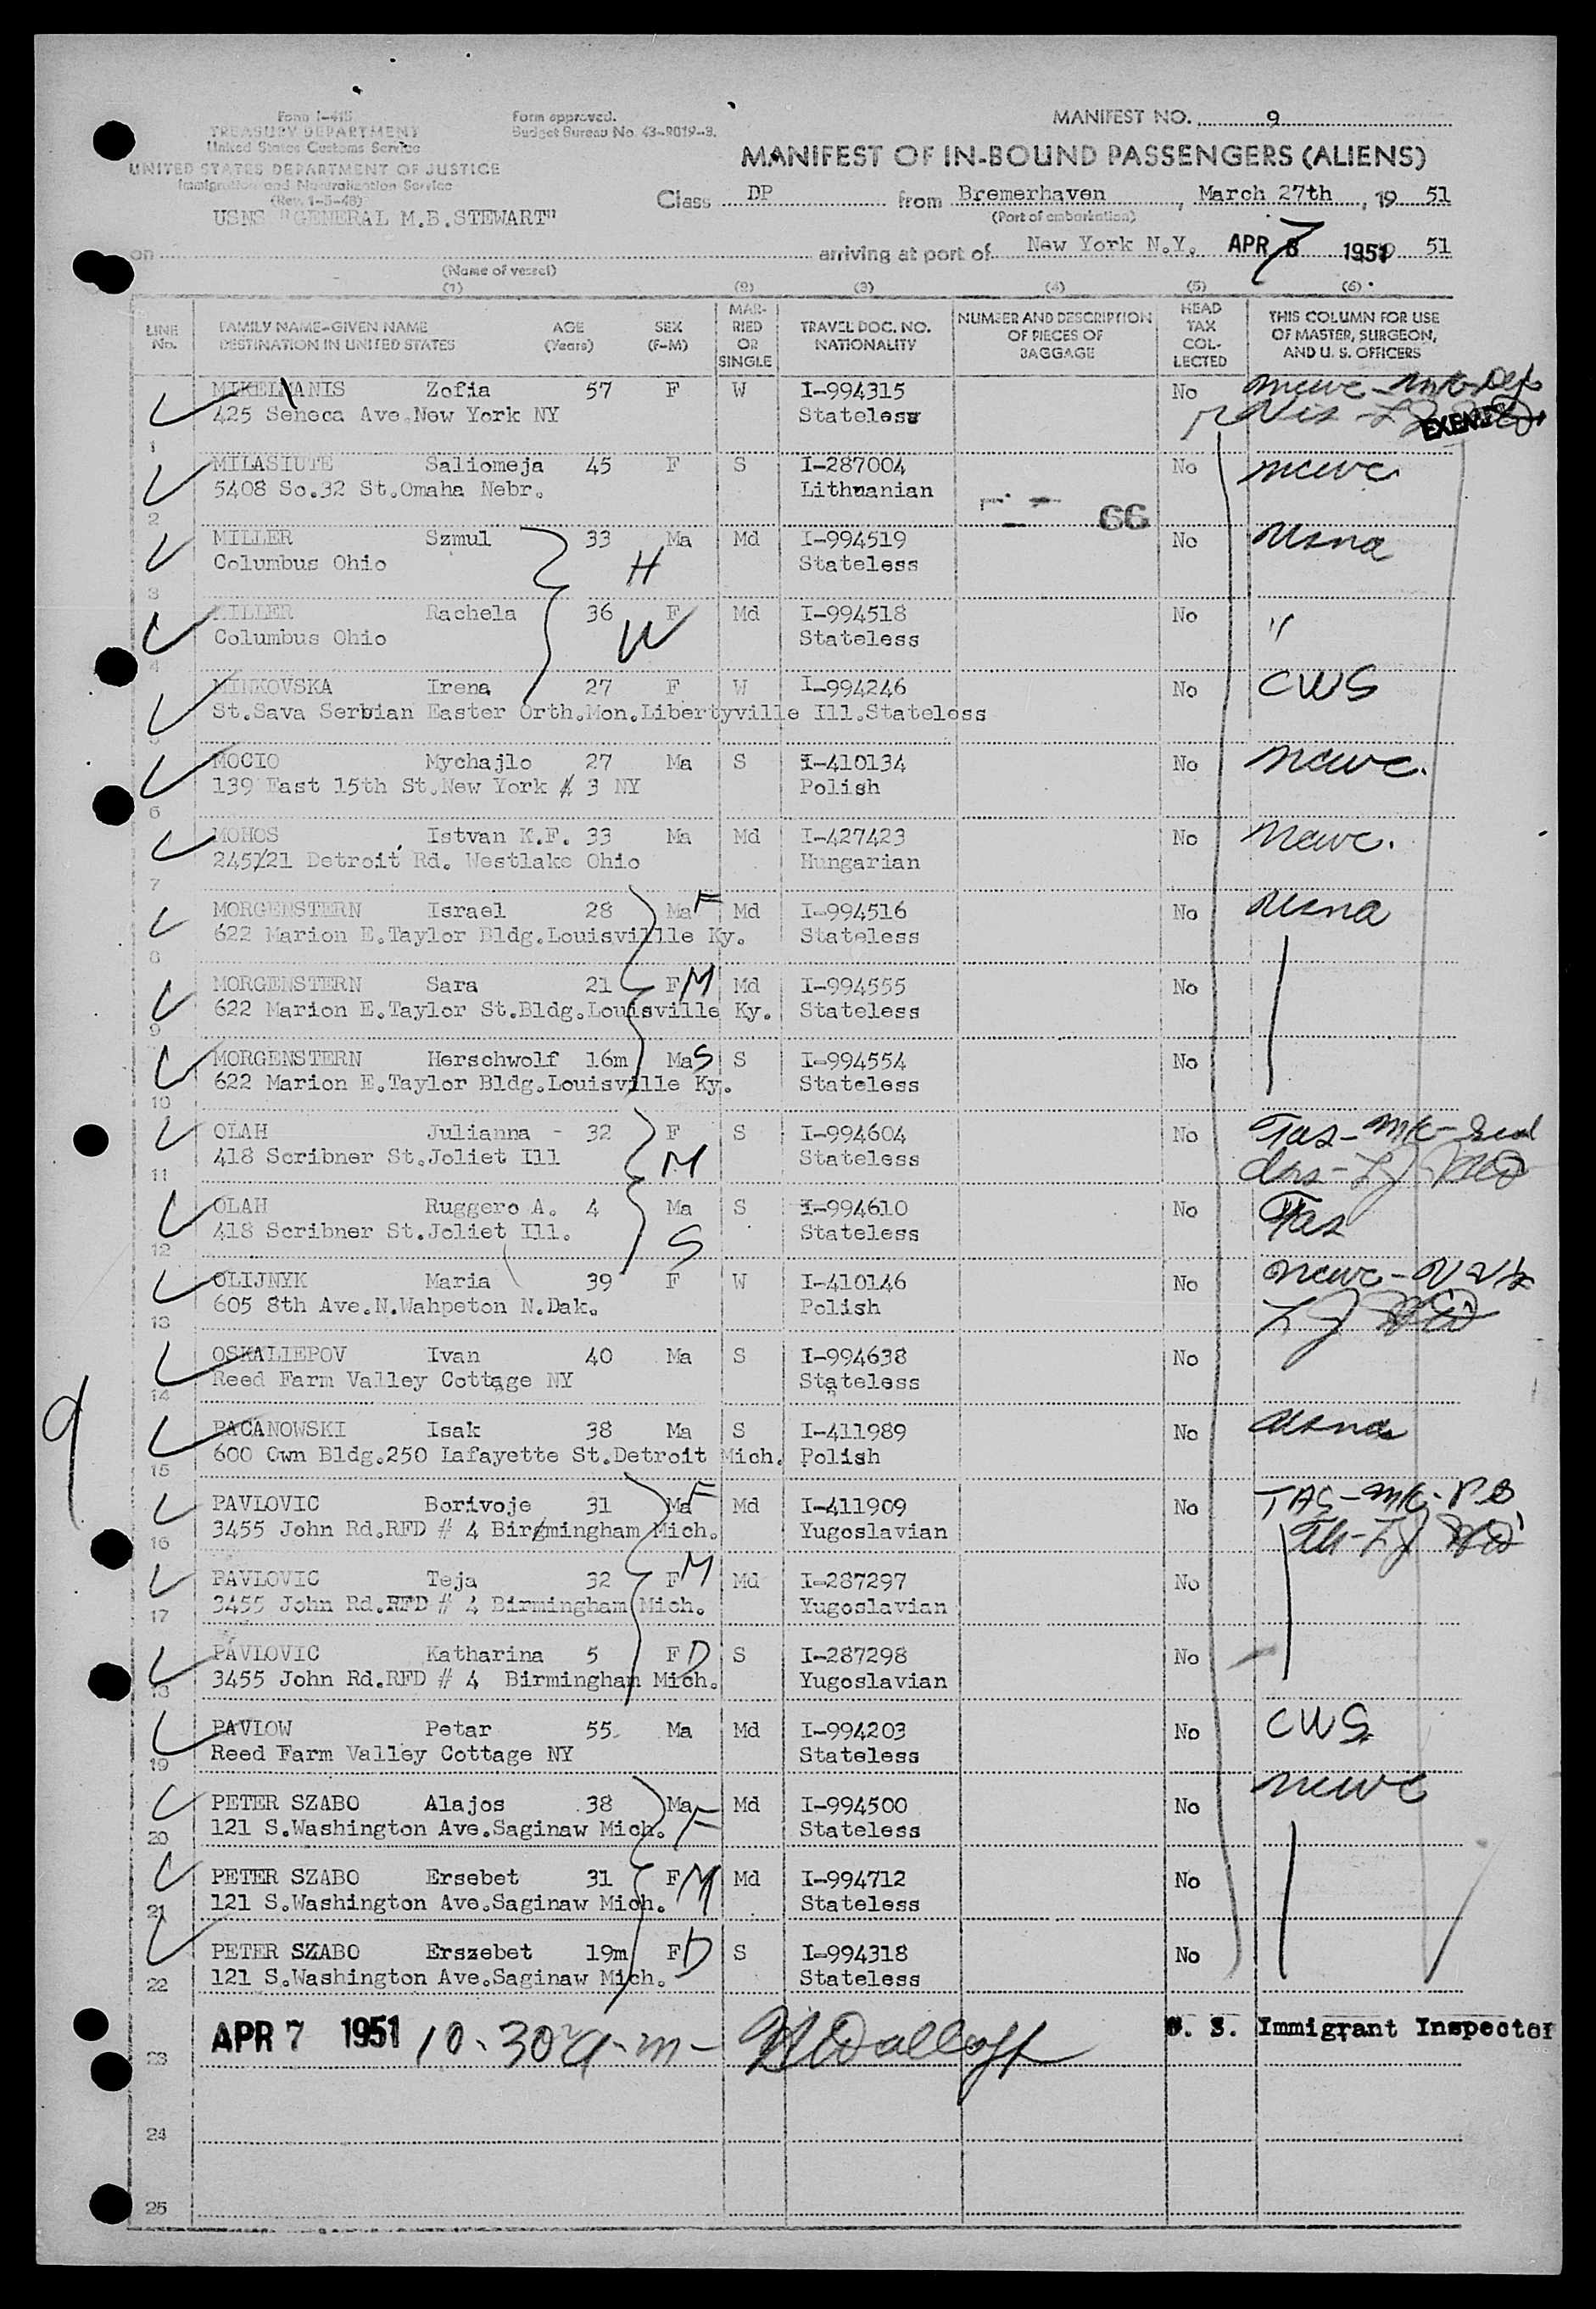 Form I-415
TREASURY DEPARTMENT
United States Customs Service
UNITED STATES DEPARTMENT OF JUSTICE
Immigration and Naturalization Service
(Rev. 1-5-48)
Form approved.
Budget Bureau No. 43-R019-3.
MANIFEST NO. 9
MANIFEST OF IN-BOUND PASSENGERS (ALIENS)
Class DP from Bremerhaven, March 27th, 19 51
(Port of embarkation)
USNS "GENERAL M.B.STEWART"
on arriving at port of New York N.Y. APR 7 1951 51
(Name of vessel)
(1) (2) (3) (4) (5) (6)
LINE No. FAMILY NAME-GIVEN NAME DESTINATION IN UNITED STATES AGE (Years) SEX (F-M) MARRIED OR SINGLE TRAVEL DOC. NO. NATIONALITY NUMBER AND DESCRIPTION OF PIECES OF BAGGAGE HEAD TAX COLLECTED THIS COLUMN FOR USE OF MASTER, SURGEON, AND U. S. OFFICERS
MIKELMANIS Zofia 57 F W I-994315 No ncwc
425 Seneca Ave.New York NY Stateless EXEMPT
1
MILASIUTE Saliomeja 45 F S I-287004 No ncwc
5408 So.32 St.Omaha Nebr. Lithuanian
2 66
MILLER Szmul 33 Ma Md I-994519 No usna
Columbus Ohio H Stateless
3
MILLER Rachela 36 F Md I-994518 No "
Columbus Ohio W Stateless
4
MINKOVSKA Irena 27 F W I-994246 No CWS
St.Sava Serbian Easter Orth.Mon.Libertyville Ill.Stateless
5
MOCIO Mychajlo 27 Ma S I-410134 No ncwc.
139 East 15th St.New York # 3 NY Polish
6
MOHOS Istvan K.F. 33 Ma Md I-427423 No ncwc.
2457/21 Detroit Rd. Westlake Ohio Hungarian
7
MORGENSTERN Israel 28 Ma F Md I-994516 No usna
622 Marion E.Taylor Bldg.Louisvillle Ky. Stateless
8
MORGENSTERN Sara 21 F M Md I-994555 No
622 Marion E.Taylor St.Bldg.Louisville Ky. Stateless
9
MORGENSTERN Herschwolf 16m Ma S S I-994554 No
622 Marion E.Taylor Bldg.Louisville Ky. Stateless
10
OLAH Julianna - 32 F S I-994604 No Tas
418 Scribner St.Joliet Ill M Stateless
11
OLAH Ruggero A. 4 Ma S I-994610 No Tas
418 Scribner St.Joliet Ill. S Stateless
12
OLIJNYK Maria 39 F W I-410146 No ncwc
605 8th Ave.N.Wahpeton N.Dak. Polish
13
OSKALIEPOV Ivan 40 Ma S I-994638 No
Reed Farm Valley Cottage NY Stateless
14
PACANOWSKI Isak 38 Ma S I-411989 No usna
600 Own Bldg.250 Lafayette St.Detroit Mich. Polish
15
PAVLOVIC Borivoje 31 Ma F Md I-411909 No TAS
3455 John Rd.RFD # 4 Birgmingham Mich. Yugoslavian
16
PAVLOVIC Teja 32 F M Md I-287297 No
3455 John Rd.RFD # 4 Birmingham Mich. Yugoslavian
17
PAVLOVIC Katharina 5 F D S I-287298 No
3455 John Rd.RFD # 4 Birmingham Mich. Yugoslavian
18
PAVLOW Petar 55 Ma Md I-994203 No CWS
Reed Farm Valley Cottage NY Stateless
19
PETER SZABO Alajos 38 Ma F Md I-994500 No ncwc
121 S.Washington Ave.Saginaw Mich. Stateless
20
PETER SZABO Ersebet 31 F M Md I-994712 No
121 S.Washington Ave.Saginaw Mich. Stateless
21
PETER SZABO Erszebet 19m F D S I-994318 No
121 S.Washington Ave.Saginaw Mich. Stateless
22
APR 7 1951 10-30 a-m- U. S. Immigrant Inspector
23
24
25
9